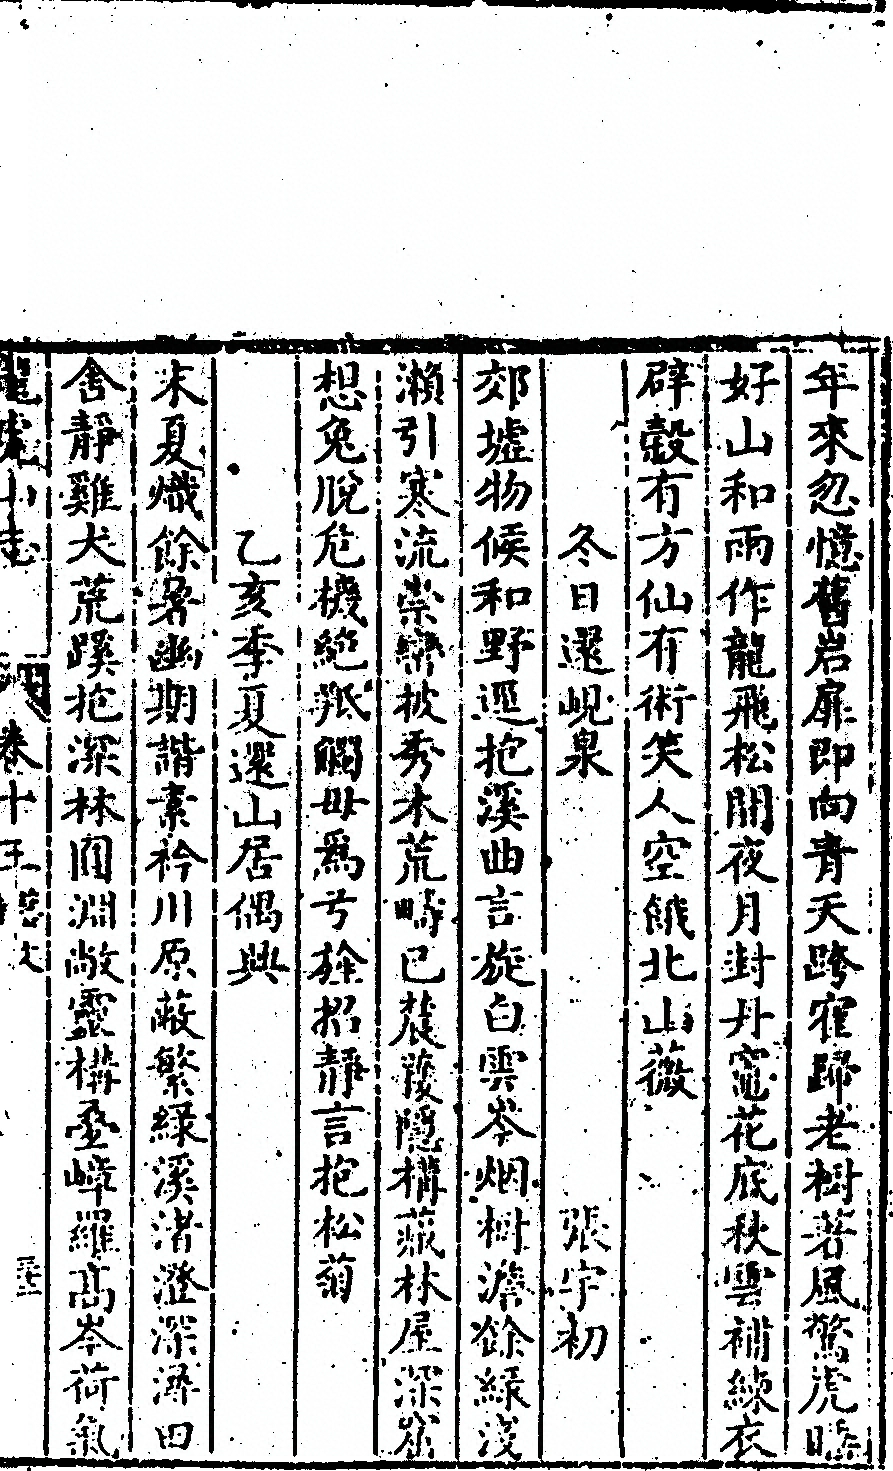 年來忽憶舊岩扉即向青天跨寉歸老樹著風驚虎睡
好山和雨作龍飛松關夜月封丹竈花底秋雲補練衣
辟穀有方仙有術笑人空餓北山薇
冬日還峴泉 張宇初
郊墟物候和野逕抱溪曲言旋白雲岑烟樹澹餘綠淺
瀨引寒流崇巒披秀木荒疇已蓘蘐隱構蔽林屋深崇
想兔脫危機絶羝觸毋爲弓旌招靜言抱松菊
乙亥季夏還山居偶興
末夏熾餘暑幽期諧素衿川原蔽繁綠溪渚澄深潯田
舍靜雞犬荒蹊抱深林囿淵敞靈構疊嶂羅高岑荷氣
龍虎山志 卷十五 藝文